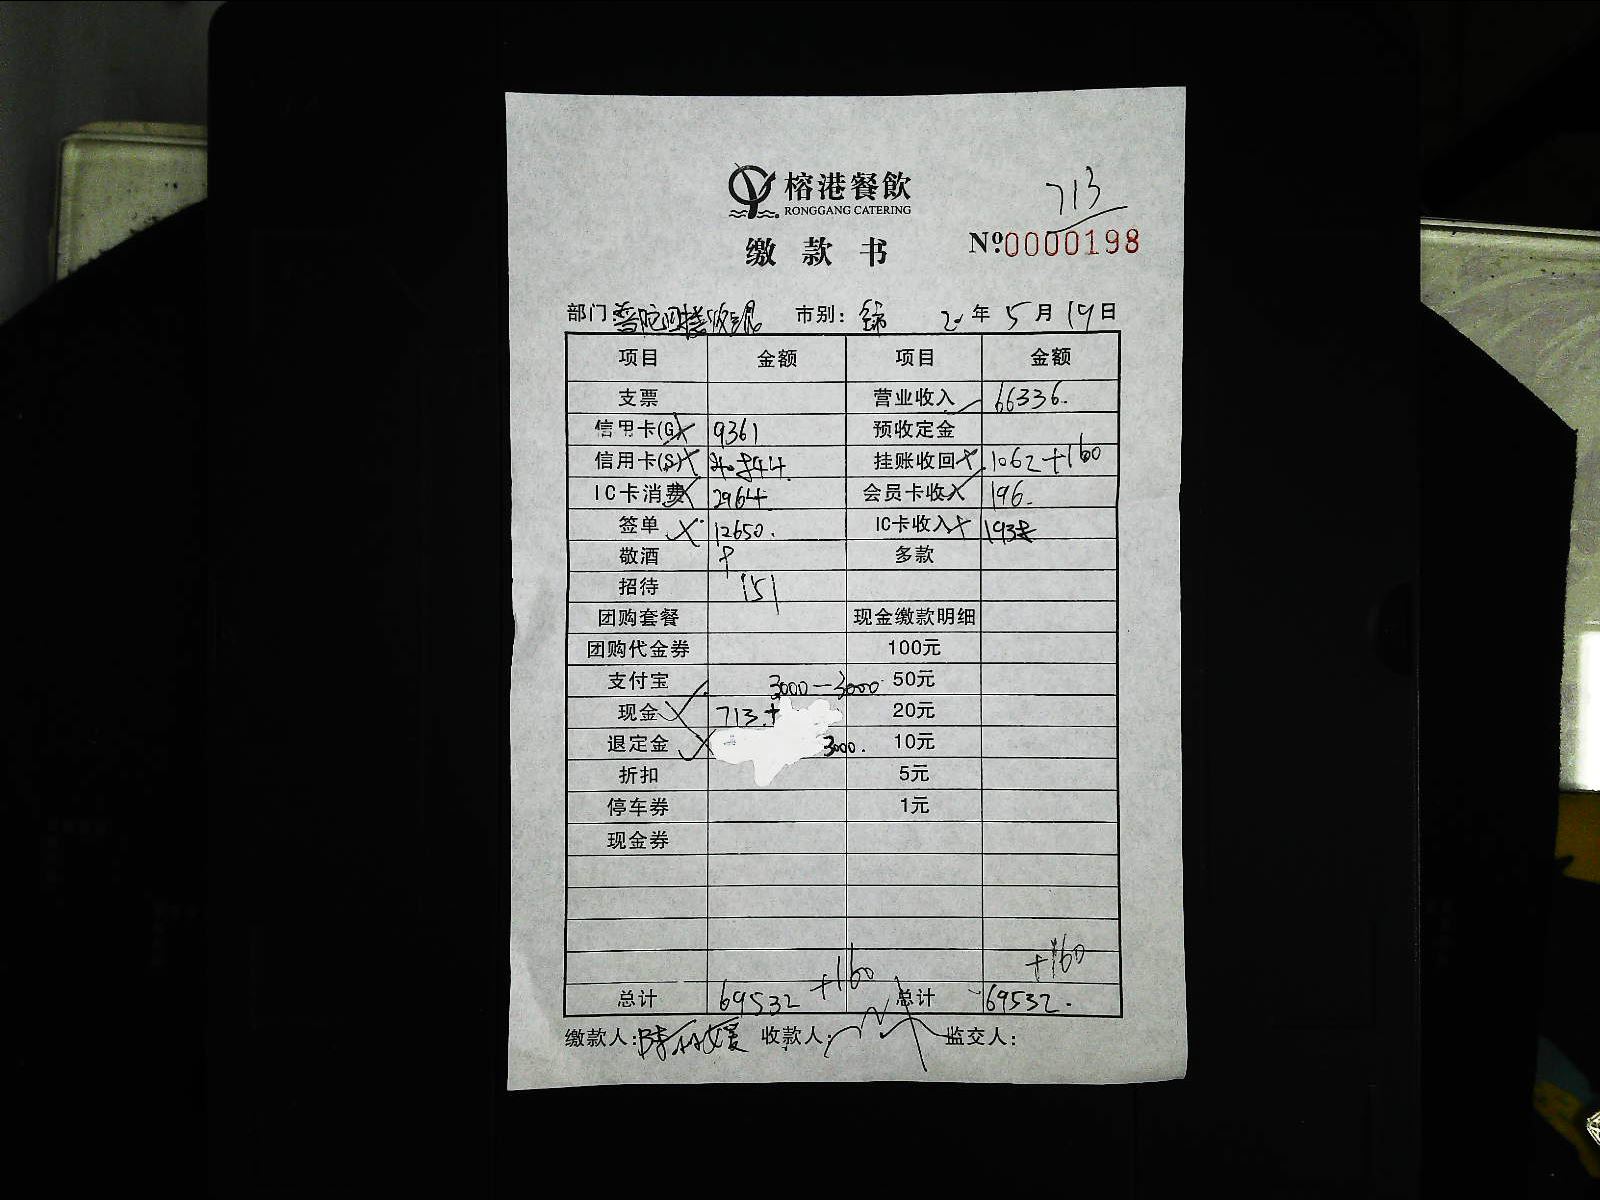 榕港餐飲
RONGGANG CATERING
713
缴款书
№0000198
部门 普陀四楼 市别: 年 5月19日
项目 金额 项目 金额
支票 营业收入 66336.
信用卡(G) 9361 预收定金
信用卡(S) 挂账收回 1062+160
IC卡消费 2964 会员卡收入 196.
签单 12650. IC卡收入
敬酒 多款
招待 151
团购套餐 现金缴款明细
团购代金券 100元
支付宝 3000—3000 50元
现金 713.+ 20元
退定金 3000. 10元
折扣 5元
停车券 1元
现金券
+160 +160
总计 69532 总计 69532.
缴款人: 收款人: 监交人: